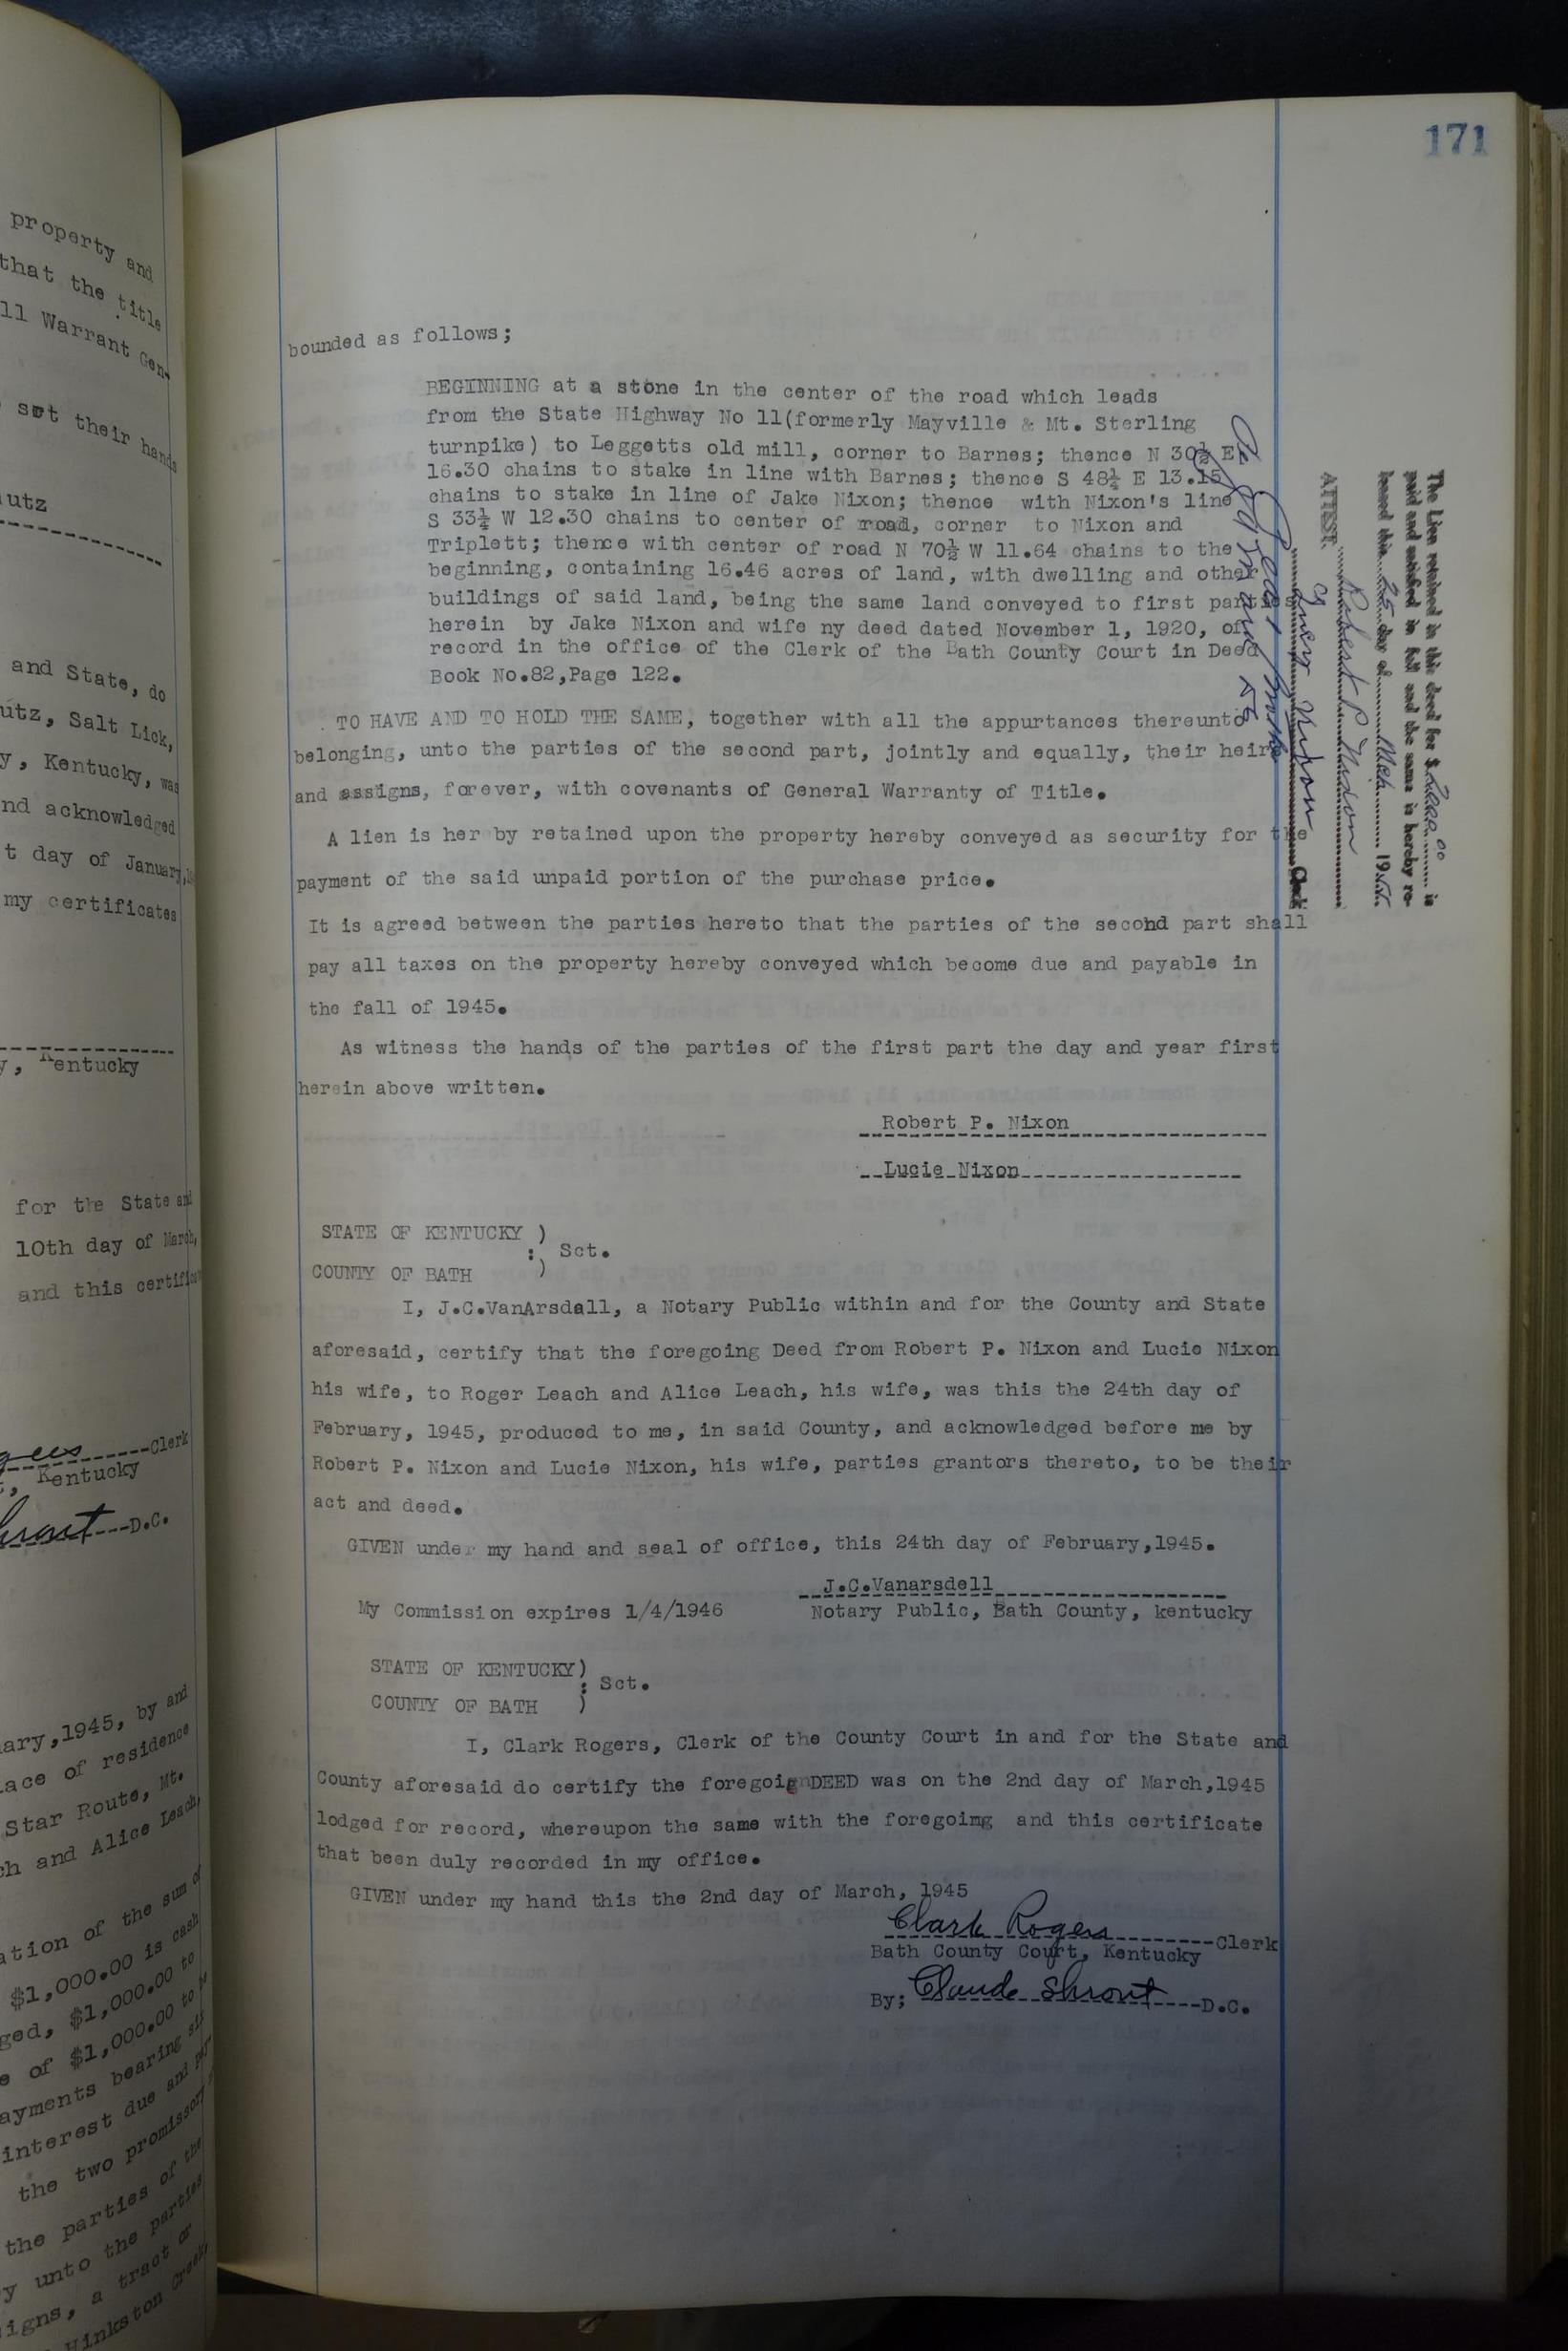 property and
that the title
ll Warrant Gen-
set their hands
utz
and State, do
utz, Salt Lick,
y, Kentucky, was
nd acknowledged
t day of January,
my certificates
y, Kentucky
for the State and
10th day of March,
and this certific
Clerk
Kentucky
Shrout D.C.
ary,1945, by and
lace of residence
Star Route, Mt.
ch and Alice Leach,
ation of the sum of
$1,000.00 is cash
ged, $1,000.00 to
e of $1,000.00 to be
ayments bearing six
interest due and
the two promissory
the parties of the
y unto the parties
signs, a tract or
Hinkston Creek,
171
bounded as follows;
BEGINNING at a stone in the center of the road which leads
from the State Highway No 11(formerly Mayville & Mt. Sterling
turnpike) to Leggetts old mill, corner to Barnes; thence N 30½ E
16.30 chains to stake in line with Barnes; thence S 48¼ E 13.15
chains to stake in line of Jake Nixon; thence with Nixon's line
S 33¼ W 12.30 chains to center of road, corner to Nixon and
Triplett; thence with center of road N 70½ W 11.64 chains to the
beginning, containing 16.46 acres of land, with dwelling and other
buildings of said land, being the same land conveyed to first parties
herein by Jake Nixon and wife ny deed dated November 1, 1920, of
record in the office of the Clerk of the Bath County Court in Deed
Book No.82,Page 122.
TO HAVE AND TO HOLD THE SAME, together with all the appurtances thereunto
belonging, unto the parties of the second part, jointly and equally, their heirs
and assigns, forever, with covenants of General Warranty of Title.
A lien is her by retained upon the property hereby conveyed as security for the
payment of the said unpaid portion of the purchase price.
It is agreed between the parties hereto that the parties of the second part shall
pay all taxes on the property hereby conveyed which become due and payable in
the fall of 1945.
As witness the hands of the parties of the first part the day and year first
herein above written.
Robert P. Nixon
Lucie Nixon
STATE OF KENTUCKY )
: Sct.
COUNTY OF BATH )
I, J.C.VanArsdall, a Notary Public within and for the County and State
aforesaid, certify that the foregoing Deed from Robert P. Nixon and Lucie Nixon
his wife, to Roger Leach and Alice Leach, his wife, was this the 24th day of
February, 1945, produced to me, in said County, and acknowledged before me by
Robert P. Nixon and Lucie Nixon, his wife, parties grantors thereto, to be their
act and deed.
GIVEN under my hand and seal of office, this 24th day of February,1945.
J.C.Vanarsdell
My Commission expires 1/4/1946 Notary Public, Bath County, kentucky
STATE OF KENTUCKY)
: Sct.
COUNTY OF BATH )
I, Clark Rogers, Clerk of the County Court in and for the State and
County aforesaid do certify the foregoignDEED was on the 2nd day of March,1945
lodged for record, whereupon the same with the foregoing and this certificate
that been duly recorded in my office.
GIVEN under my hand this the 2nd day of March, 1945
Clark Rogers Clerk
Bath County Court, Kentucky
By; Claude Shrout D.C.
The Lien retained in this deed for $ 2000.00 is
paid and satisfied in full and the same is hereby re-
leased this 25 day of Mch 19
Robert P. Nixon
ATTEST:
Nixon
Clerk